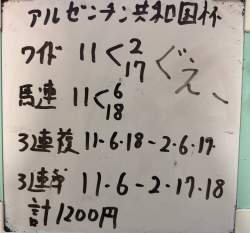 アルゼンチン共和国杯
ワイド 11< 2 17
ぐえ〜
馬連 11< 6 18
3連複 11-6・18-2・6・17
3連単 11-6-2・17・18
計1200円